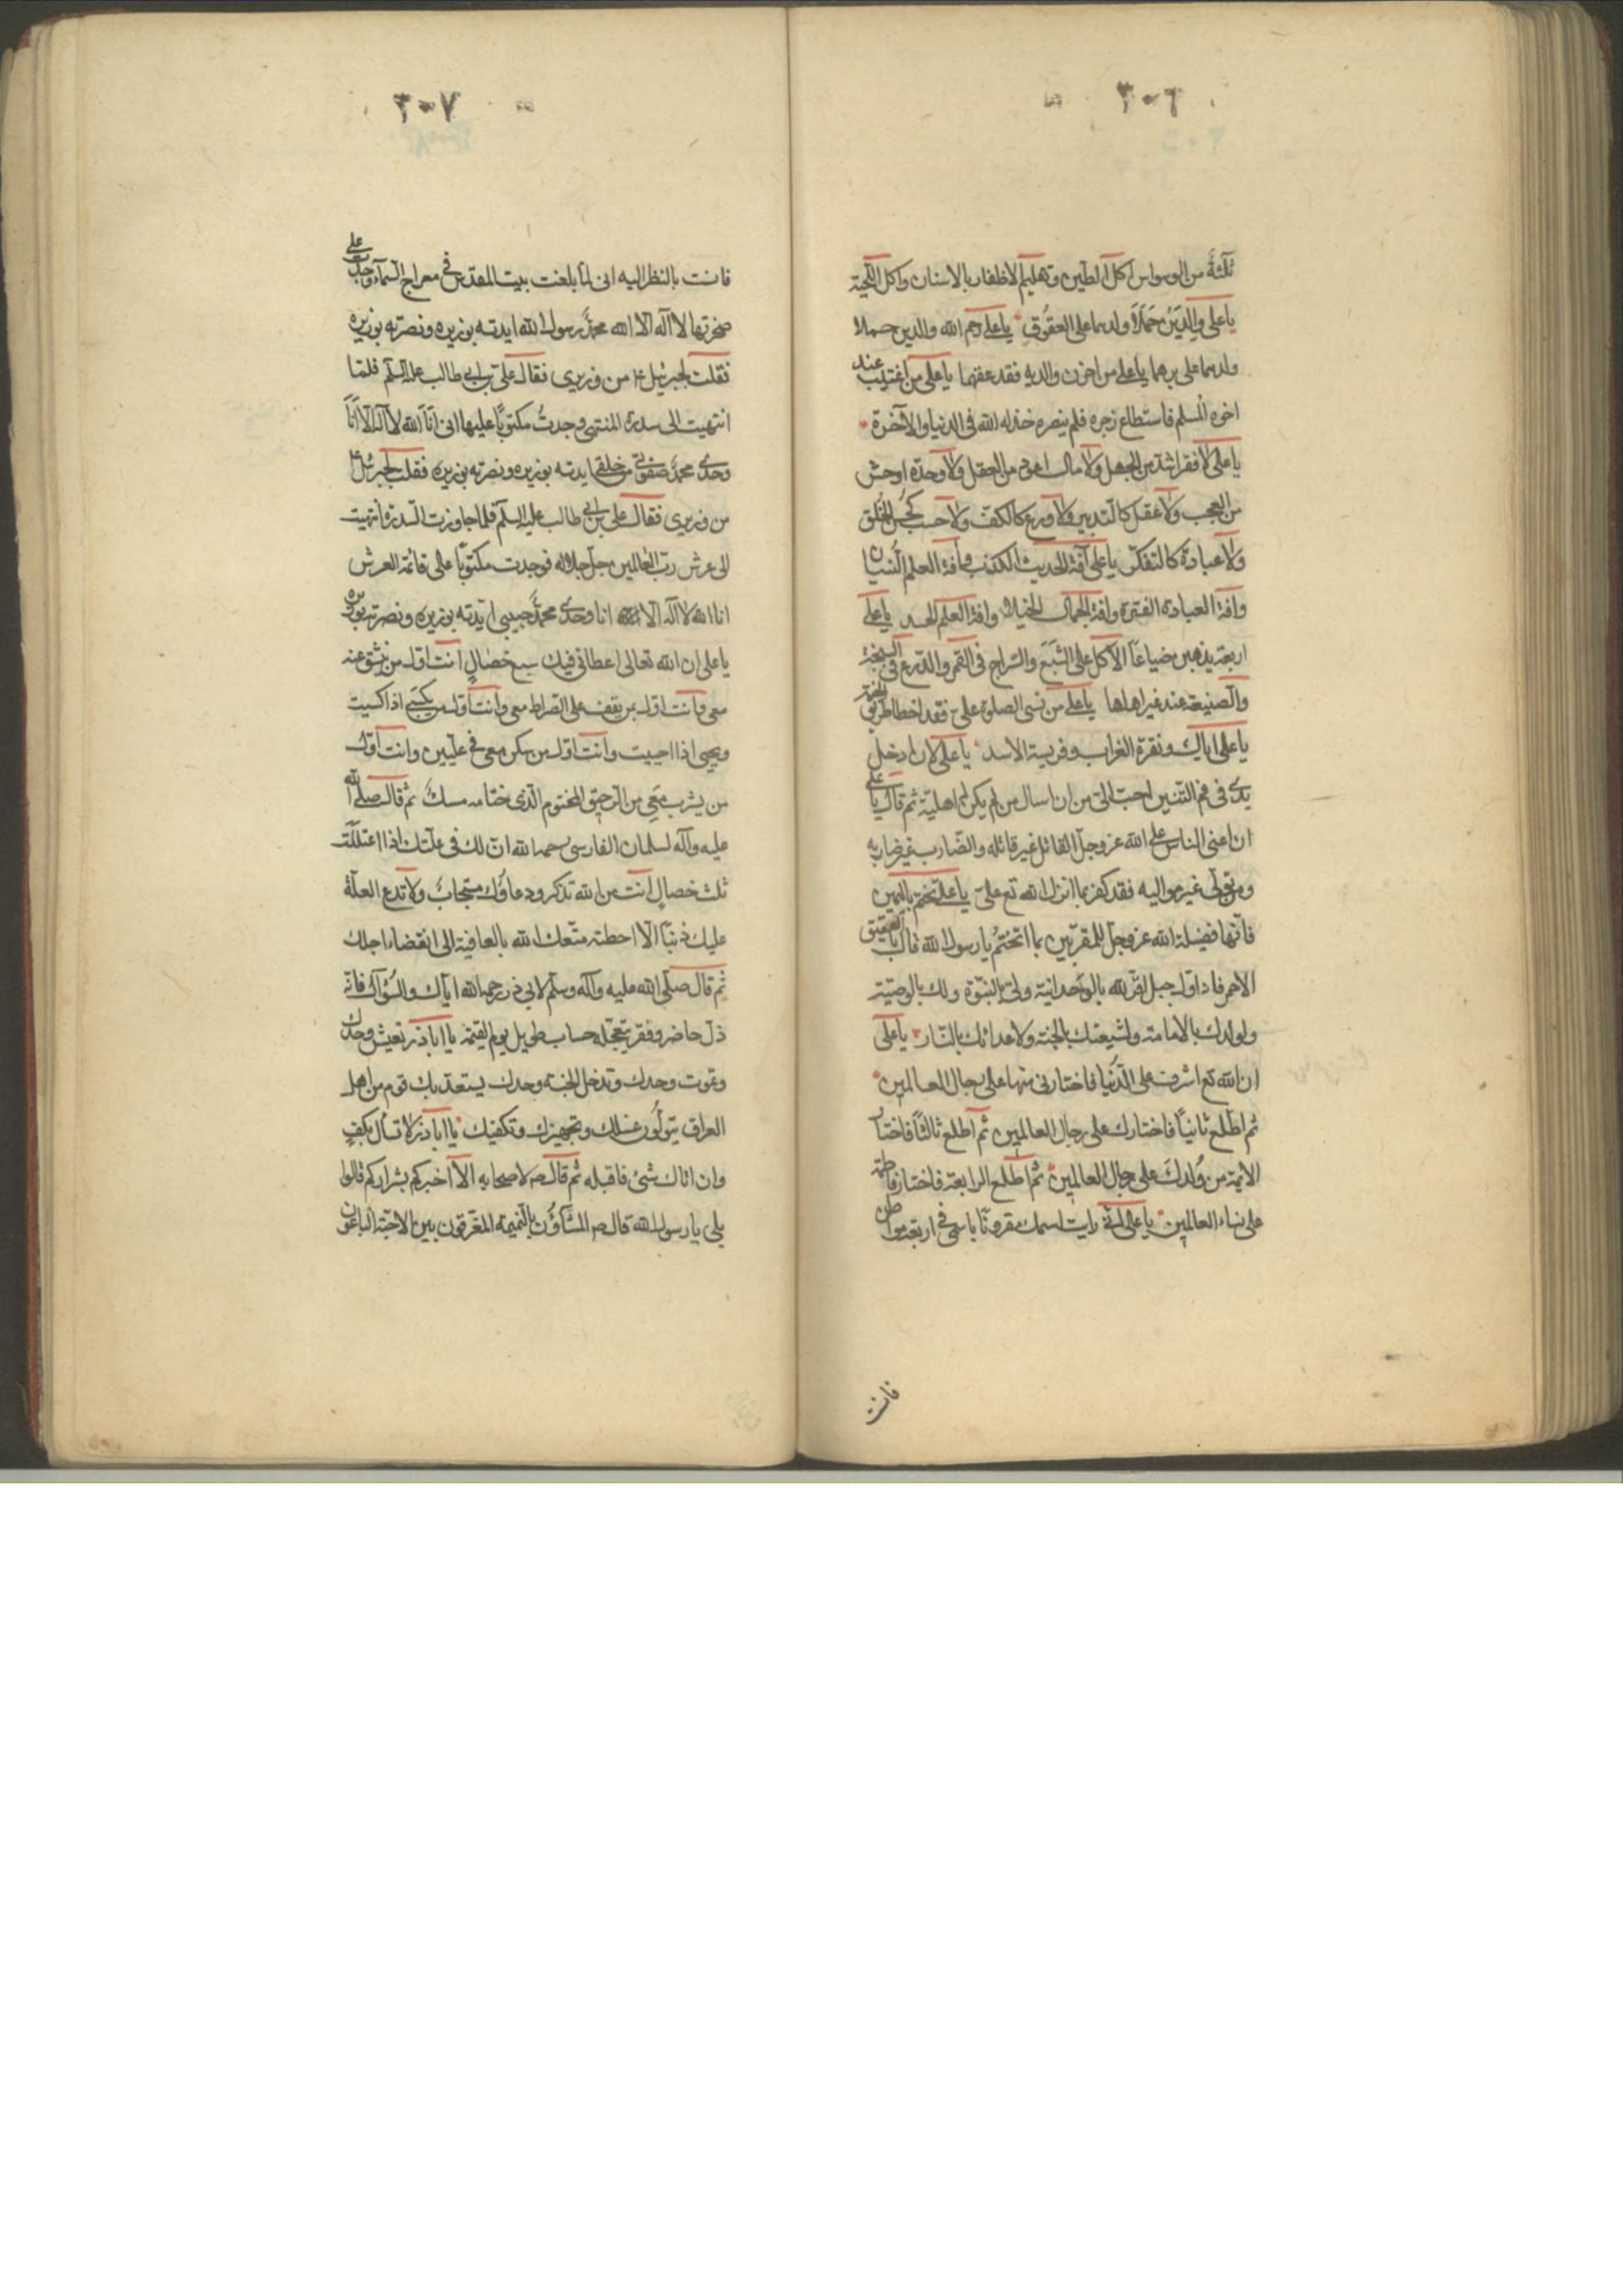 ٣٠٦
ثلثة من الوسواس اكل الطين وتقليم الاظفار بالاسنان واكل اللحية
يا على والدين حملا ولدهما على العقوق يا على رحم الله والدين حملا
ولدهما على برهما يا على من احزن والديه فقد عقهما يا على من اغتيب عنده
اخوه المسلم فاستطاع نصره فلم ينصره خذله الله فى الدنيا والآخرة
يا على لا فقر اشد من الجهل ولا مال اعود من العقل ولا وحدة اوحش
من العجب ولا عقل كالتدبير ولا ورع كالكف ولا حسب كحسن الخلق
ولا عبادة كالتفكر يا على آفة الحديث الكذب وآفة العلم النسيان
وافة العبادة الفترة وافة الجمال الخيلاء وافة العلم الحسد يا على
اربعة يذهبن ضياعا الاكل على الشبع والسراج فى القمر والزرع فى السبخة
والصنيعة عند غير اهلها يا على من نسى الصلوة على فقد اخطا طريق الجنة
يا على اياك ونقرة الغراب وفريسة الاسد يا على لان ادخل
يدى فى فم التنين احب الى من ان اسال من لم يكن ثم اهلية ثم قال يا على
ان اعتى الناس على الله عز وجل القاتل غير قاتله والضارب غير ضاربه
ومن تولى غير مواليه فقد كفر بما انزل الله تع على يا على تختم باليمين
فانها فضيلة الله عز وجل للمقربين بما اتختم يا رسول الله قال بالعقيق
الاحمر فاذ اول جبل اقر لله بالوحدانية ولى بالنبوة ولك بالوصية
ولولدك بالامامة ولشيعتك بالجنة ولاعدائك بالنار يا على
ان الله تع اشرف على الدنيا فاختارنى منها على رجال العالمين
ثم اطلع ثانيا فاختارك على رجال العالمين ثم اطلع ثالثا فاختار
الائمة من ولدك على رجال العالمين ثم اطلع الرابعة فاختار فاطمة
على نساء العالمين يا على انى رايت اسمك مقرونا باسمى فى اربعة مواطن
فانت
٣٠٧
فانست بالنظر اليه انى لما بلغت بيت المقدس فى معراج السماء وجدت على
صخرتها لا اله الا الله محمد رسول الله ايدته بوزيره ونصرته بوزيره
فقلت لجبرئيل ع من وزيرى فقال على بن ابى طالب عليه السلم فلما
انتهيت الى سدرة المنتهى وجدت مكتوبا عليها انى انا الله لا اله الا انا
وحدى محمد صفوتى من خلقى ايدته بوزيره ونصرته بوزيره فقلت لجبرئيل ع
من وزيرى فقال على بن ابى طالب عليه السلم فلما جاوزت السدرة انتهيت
الى عرش رب العالمين جل جلاله فوجدت مكتوبا على قائمة العرش
انا الله لا اله الا انا وحدى محمد حبيبى ايدته بوزيره ونصرته بوزيره
يا على ان الله تعالى اعطانى فيك سبع خصال انت اول من ينشق عنه
معى وانت اول من يقف على الصراط معى وانت اول من يكسى اذا كسيت
ويحيى اذا احييت وانت اول من سكن معى فى عليين وانت اول
من يشرب معى من الرحيق المختوم الذى ختامه مسك ثم قال صلى الله
عليه وآله لسلمان الفارسى رحمه الله ان لك فى علتك اذا اعتللت
ثلث خصال انت من الله تذكر ودعاؤك مستجاب ولا تدع العلة
عليك ذنبا الا احطته متعك الله بالعافية الى انقضاء اجلك
ثم قال صلى الله عليه وآله وسلم لابى ذر رحمه الله اياك والسؤال فانه
ذل حاضر وفقر تتعجله حساب طويل يوم القيمة يا اباذر تعيش وحدك
وتموت وحدك وتدخل الجنة وحدك يستعد بك قوم من اهل
العراق يتولون غسلك وتجهيزك وتكفينك يا اباذر لا تسأل بكف
وان اتاك شئ فاقبله ثم قال ص لاصحابه الا اخبركم بشراركم قالوا
بلى يا رسول الله قال ص المشاؤن بالنميمة المفرقون بين الاحبة الباغون